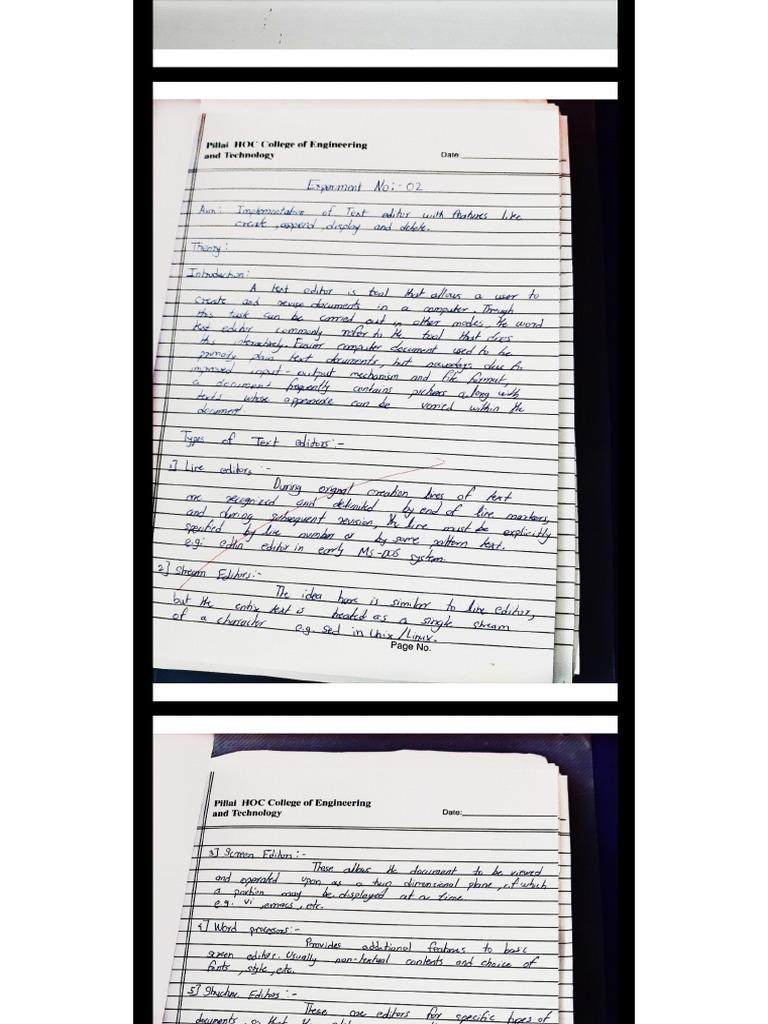 Pillai HOC College of Engineering
and Technology
Date:
Experiment No:- 02
Aim: Implementation of Text editor with features like
create, append, display and delete.
Theory:
Introduction:
A text editor is tool that allows a user to
create and revise documents in a computer. Though
this task can be carried out in other modes, the word
text editor commonly refer to the tool that does
this interactively. Earlier computer document used to be
primarily plain text documents, but nowadays due to
improved input-output mechanism and file format,
a document frequently contains pictures along with
texts whose appearance can be varried within the
document
Types of Text editors:-
1] Line editors:-
During original creation lines of text
are recognized and delimited by end of line markers,
and during subsequent revision, the line must be explicitly
specified by line number or by some pattern text.
e.g: edlin editor in early MS-DOS system.
2] Stream Editors:-
The idea here is similar to line editor,
but the entire text is treated as a single stream
of a character e.g. sed in Unix/Linux.
Page No.
Pillai HOC College of Engineering
and Technology
Date:
3] Screen Editors:-
These allows the document to be viewed
and operated upon as a two dimensional plane, of which
a portion may be displayed at a time.
e.g. vi, emacs, etc.
4] Word processors:-
Provides additional features to basic
screen editors. Usually non-textual contents and choice of
fonts, style, etc.
5] Structure Editors:-
These are editors for specific types of
documents, so that the